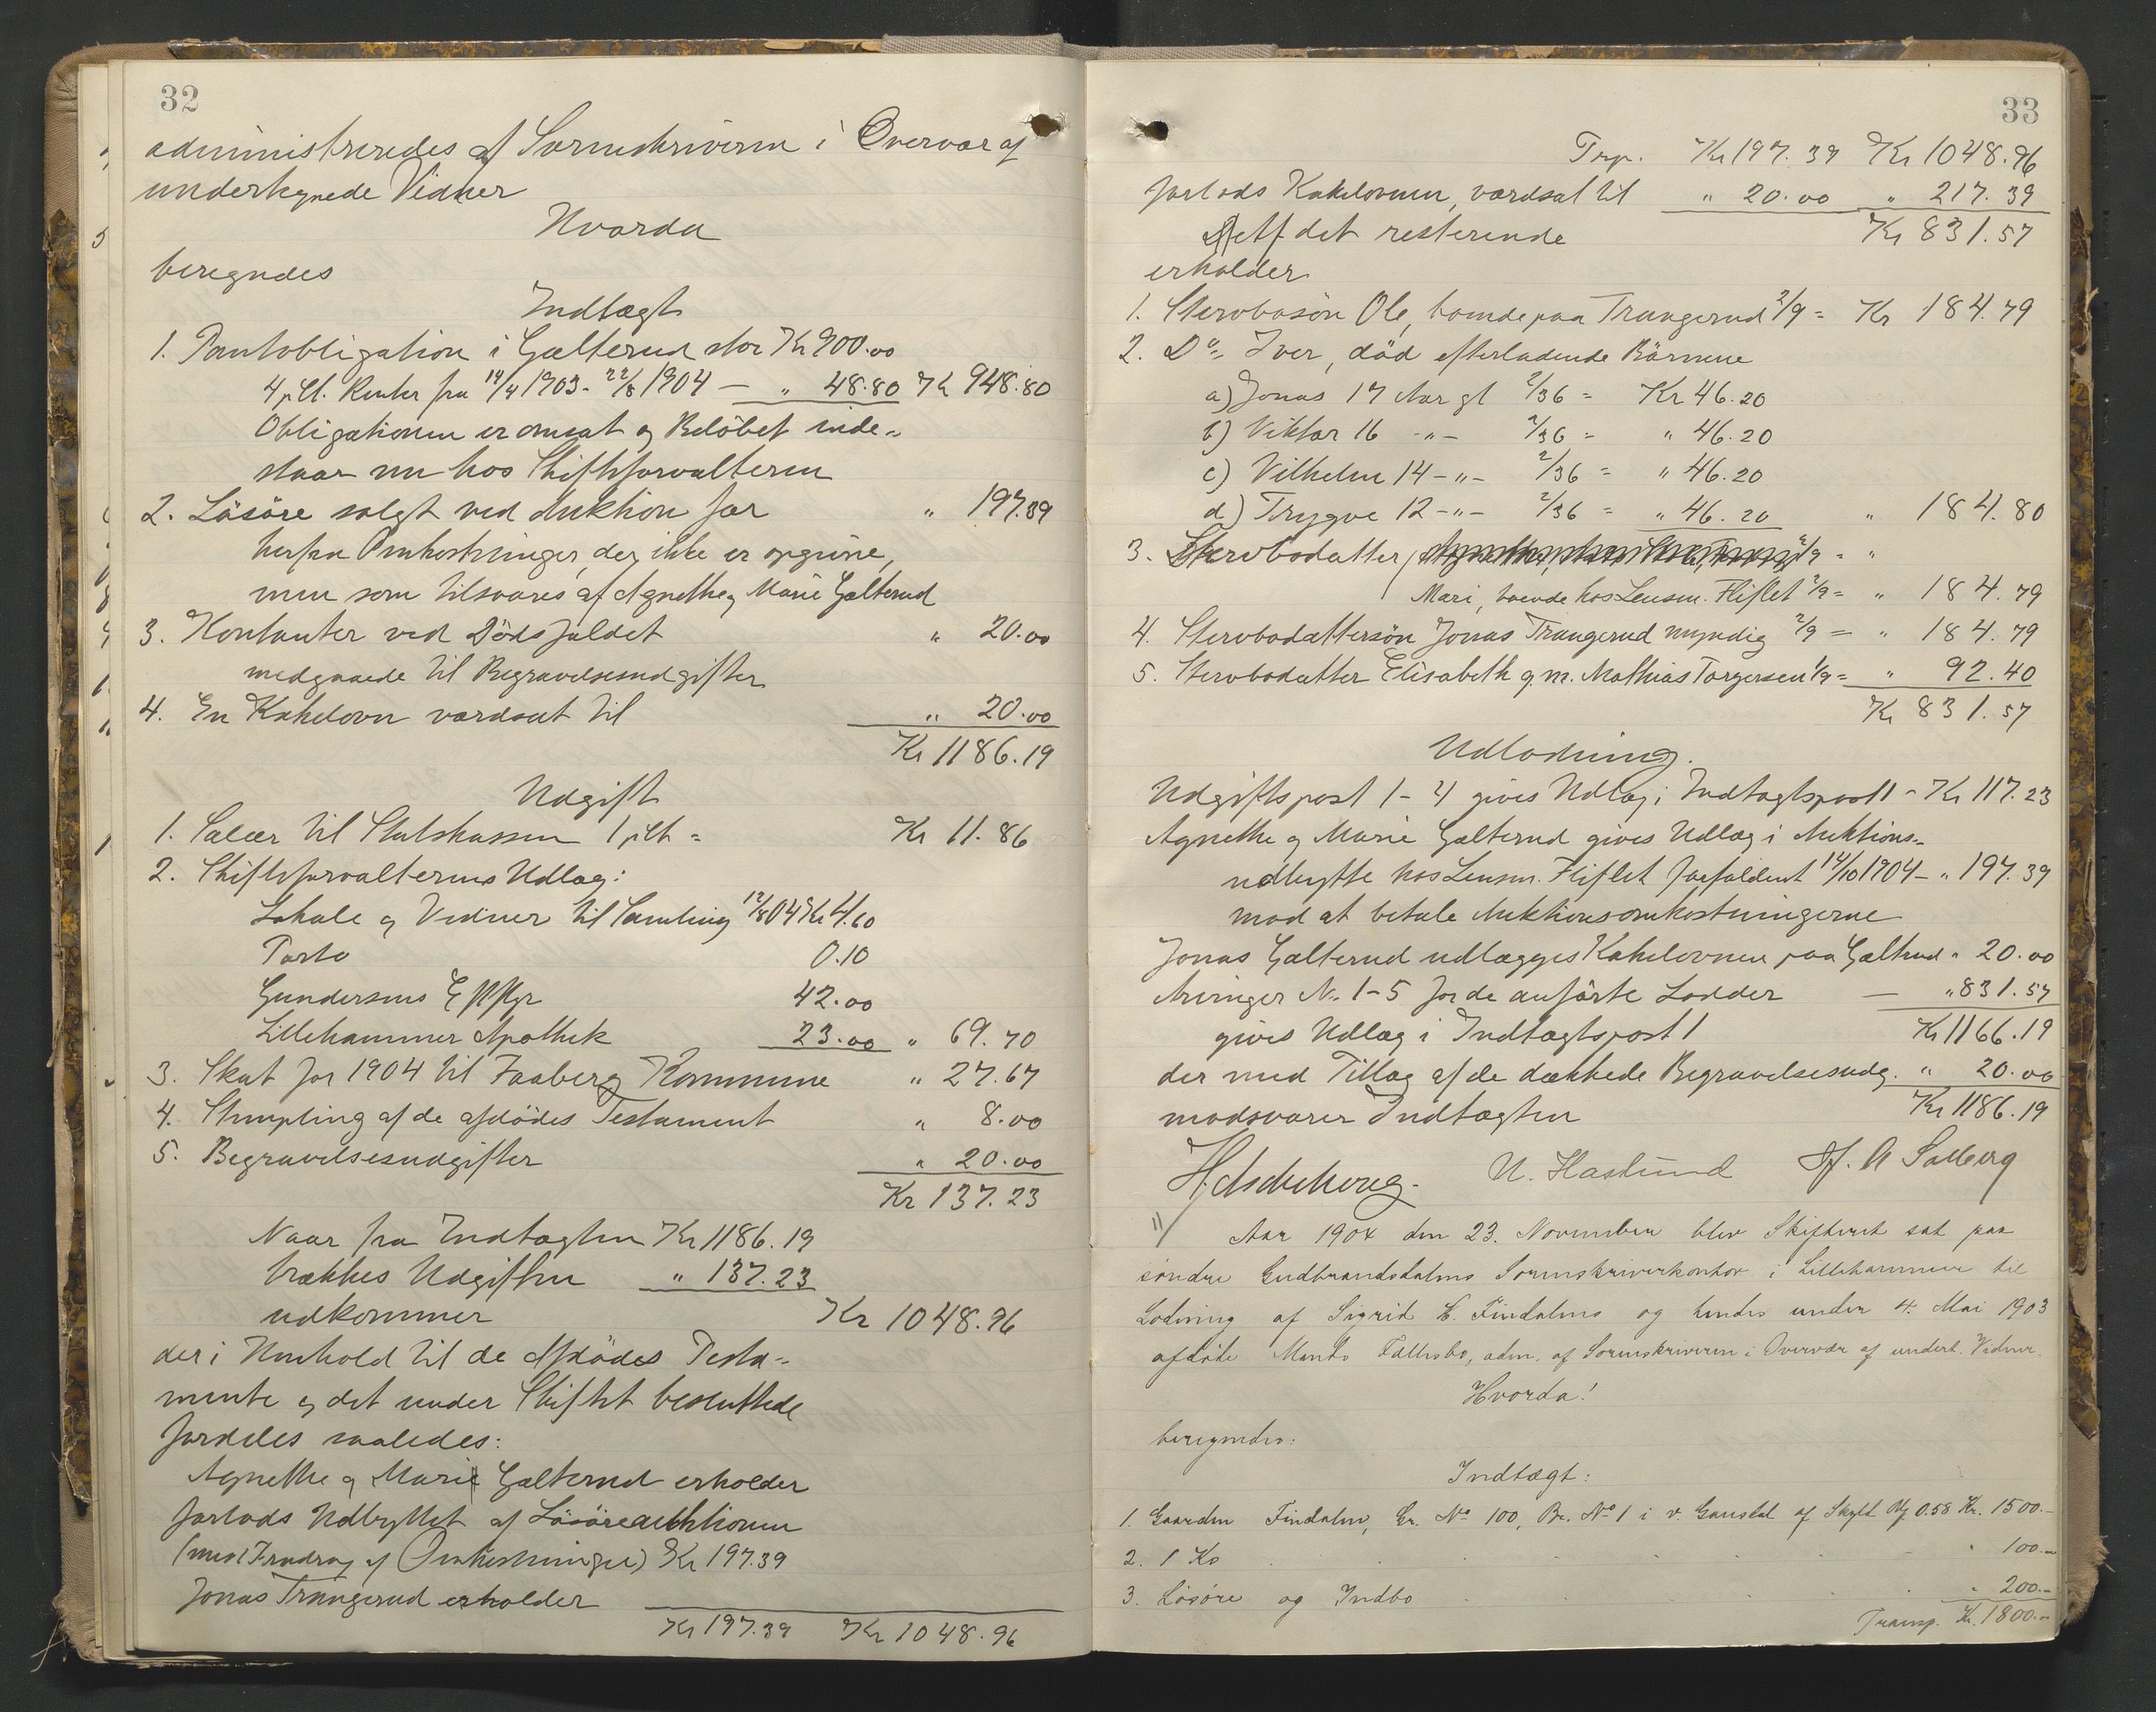 32
administreredes af Sorenskriveren i Overvær af
undertegnede Vidner
Hvorda
beregnedes
Indtægt
1. Pantobligation i Gælterud stor Kr 900.00
4 pCt. Renter fra 14/4 1903 - 22/8 1904 — " 48.80 Kr 948.80
Obligationen er omsat og Beløbet inde-
staar nu hos Skifteforvalteren
2. Løsøre solgt ved Auktion for " 197.39
herfra Omkostninger, der ikke er opgivne,
men som tilsvares af Agnethe og Marie Gælterud
3. Kontanter ved Dødsfaldet " 20.00
medgaaede til Begravelsesudgifter
4. En Kakelovn værdsat til " 20.00
Kr 1186.19
Udgift
1. Salær til Statskassen 1 pCt = Kr 11.86
2. Skifteforvalterens Udlæg:
Lokale og Vidner til Samling 12/8 04 Kr 4.60
Porto 0.10
Gundersens Eftflgr 42.00
Lillehammer Apothek 23.00 " 69.70
3. Skat for 1904 til Faaberg Kommune " 27.67
4. Stempling af de afdødes Testament " 8.00
5. Begravelsesudgifter " 20.00
Kr 137.23
Naar fra Indtægten Kr 1186.19
trækkes Udgiften " 137.23
udkommer Kr 1048.96
der i Henhold til de Afdødes Testa-
mente og det under Skiftet besluttede
fordeles saaledes:
Agnethe og Marie Gælterud erholder
forlods Udbyttet af Løsøreauktionen
(med Fradrag af Omkostninger) Kr 197.39
Jonas Trangerud erholder
Kr 197.39 Kr 1048.96
33
Trp. Kr 197.39 Kr 1048.96
forlods Kakelovnen, værdsat til " 20.00 " 217.39
Aff det resterende Kr 831.57
erholder
1. Stervbosøn Ole, boende paa Trangerud 2/9 = Kr 184.79
2. Do Iver, død efterladende Børnene
a) Jonas 17 Aar gl 2/36 = Kr 46.20
b) Viktor 16 -"- 2/36 = " 46.20
c) Vilhelm 14 -"- 2/36 = " 46.20
d) Trygve 12 -"- 2/36 = " 46.20 " 184.80
3. Stervbodatter 2/9 = "
Mari, boende hos Lensm. Fliflet 2/9 = " 184.79
4. Stervbodattersøn Jonas Trangerud myndig 2/9 = " 184.79
5. Stervbodatter Elisabeth g.m. Mathias Torgersen 1/9 = " 92.40
Kr 831.57
Udlodning.
Udgiftspost 1-4 gives Udlæg i Indtægtspost 1 - Kr 117.23
Agnethe og Marie Gælterud gives Udlæg i Auktions-
udbytte hos Lensm. Fliflet forfaldent 14/10 1904 - " 197.39
mod at betale Auktionsomkostningerne
Jonas Gælterud udlægges Kakelovnen paa Gælterud " 20.00
Arvinger No 1-5 for de anførte Lodder — " 831.57
gives Udlæg i Indtægtspost 1 Kr 1166.19
der med Tillæg af de dækkede Begravelsesudg. " 20.00
modsvarer Indtægten Kr 1186.19
N. Haslund A Solberg
Aar 1904 den 23. November blev Skifteret sat paa
søndre Gudbrandsdalens Sorenskriverkontor i Lillehammer til
Lodning af Sigrid E. Findalens og hendes under 4. Mai 1903
afdøde Mands Fællesbo, adm. af Sorenskriveren i Overvær af undert. Vidner.
Hvorda!
beregnedes:
Indtægt:
1. Gaarden Findalen, Gr. No 100, Br. No 1 i v. Gausdal af Skyld M 0.58 Kr. 1500.-
2. 1 Ko " 100.-
3. Løsøre og Indbo " 200.-
Transp. Kr. 1800.-